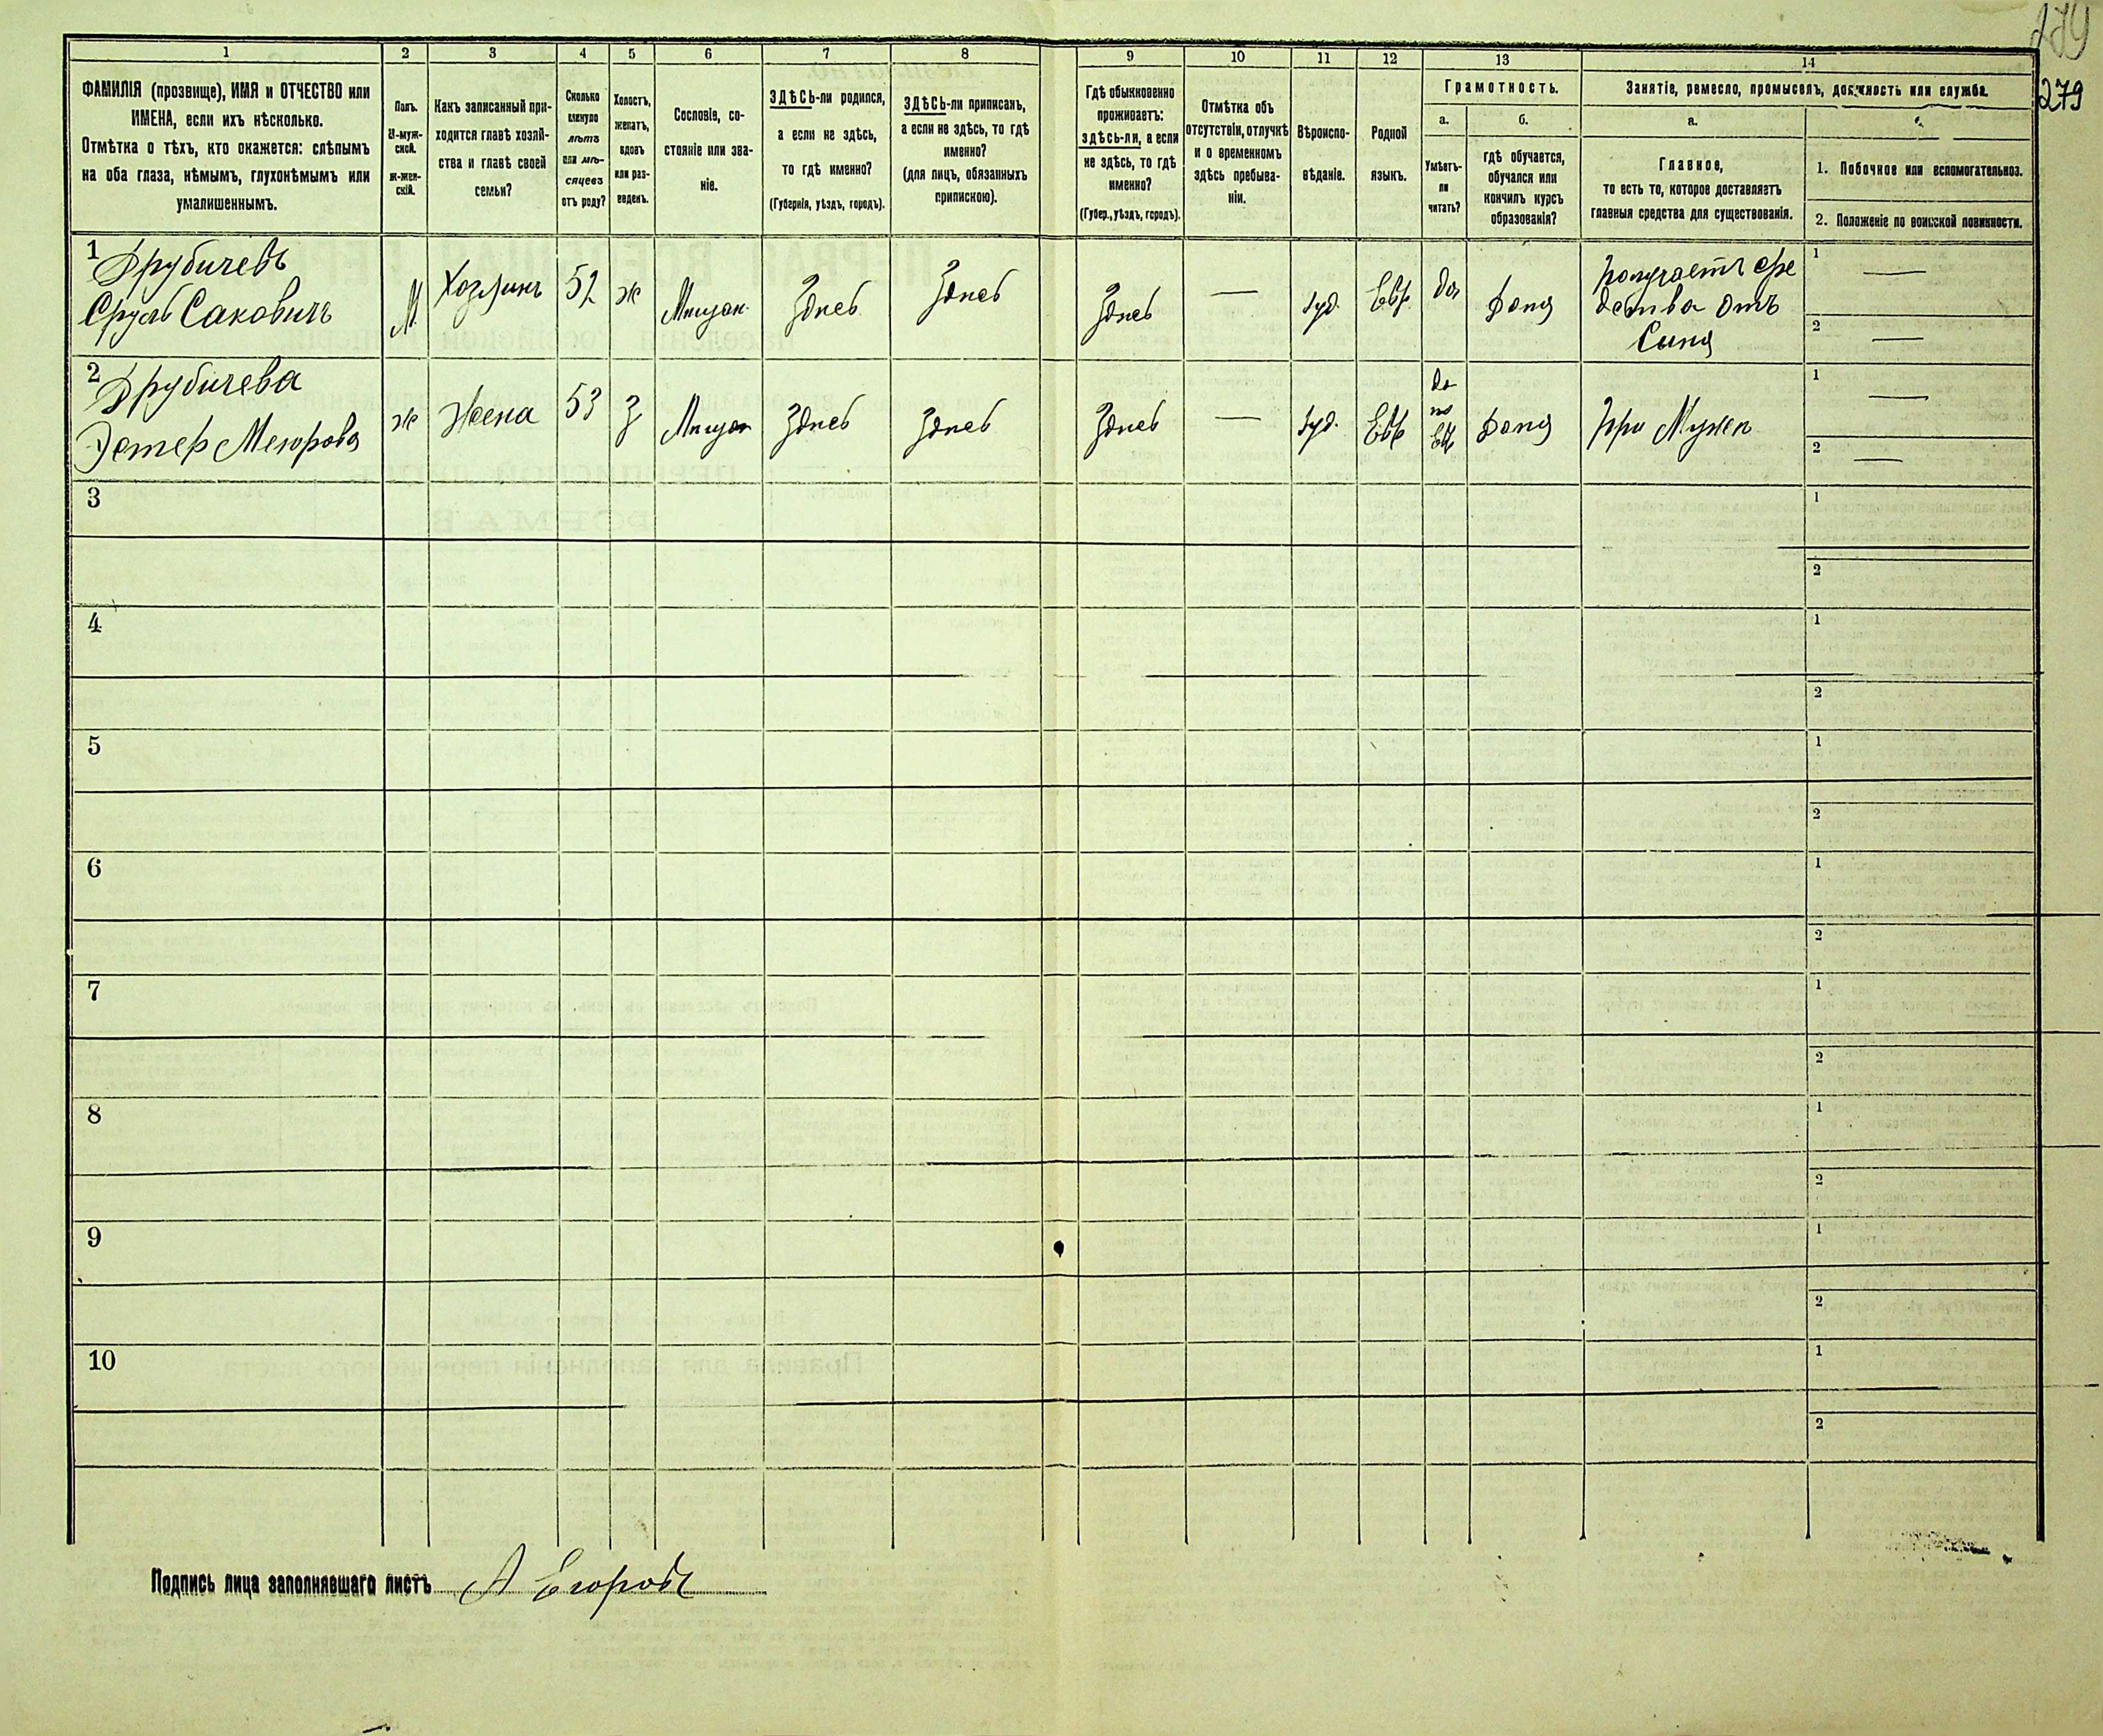 279
279
1 2 3 4 5 6 7 8 9 10 11 12 13 14
ФАМИЛІЯ (прозвище), ИМЯ и ОТЧЕСТВО или
ИМЕНА, если ихъ нѣсколько.
Отмѣтка о тѣхъ, кто окажется: слѣпымъ
на оба глаза, нѣмымъ, глухонѣмымъ или
умалишеннымъ.
Полъ.
М-муж-
ской.
ж-жен-
скій.
Какъ записанный при-
ходится главѣ хозяй-
ства и главѣ своей
семьи?
Сколько
минуло
лѣтъ
или мѣ-
сяцевъ
отъ роду?
Холостъ,
женатъ,
вдовъ
или раз-
веденъ.
Сословіе, со-
стояніе или зва-
ніе.
ЗДѢСЬ-ли родился,
а если не здѣсь,
то гдѣ именно?
(Губернія, уѣздъ, городъ).
ЗДѢСЬ-ли приписанъ,
а если не здѣсь, то гдѣ
именно?
(для лицъ, обязанныхъ
припискою).
Гдѣ обыкновенно
проживаетъ:
здѣсь-ли, а если
не здѣсь, то гдѣ
именно?
(Губер., уѣздъ, городъ).
Отмѣтка объ
отсутствіи, отлучкѣ
и о временномъ
здѣсь пребыва-
ніи.
Вѣроиспо-
вѣданіе.
Родной
языкъ.
Грамотность.
а.
Умѣетъ-
ли
читать?
б.
гдѣ обучается,
обучался или
кончилъ курсъ
образованія?
Занятіе, ремесло, промыселъ, должность или служба.
а.
Главное,
то есть то, которое доставляетъ
главныя средства для существованія.
1. Побочное или вспомогательное.
2. Положеніе по воинской повинности.
1 Друбичевъ
Сруль Саковичъ
М
Хозяинъ
52
ж
Мѣщан.
Здѣсь
Здѣсь
Здѣсь
—
Іуд.
Евр.
Да
Дома
Получаетъ сре
дства отъ
Сына
1 —
2 —
2 Друбичева
Эстер Меюрова
ж
Жена
53
З
Мѣщан
Здѣсь
Здѣсь
Здѣсь
—
Іуд.
Евр
да
по
Евр
Дома
При Мужѣ
1 —
2 —
3 1
2
4 1
2
5 1
2
6 1
2
7 1
2
8 1
2
9 1
2
10 1
2
Подпись лица заполнявшаго листъ А Егоровъ